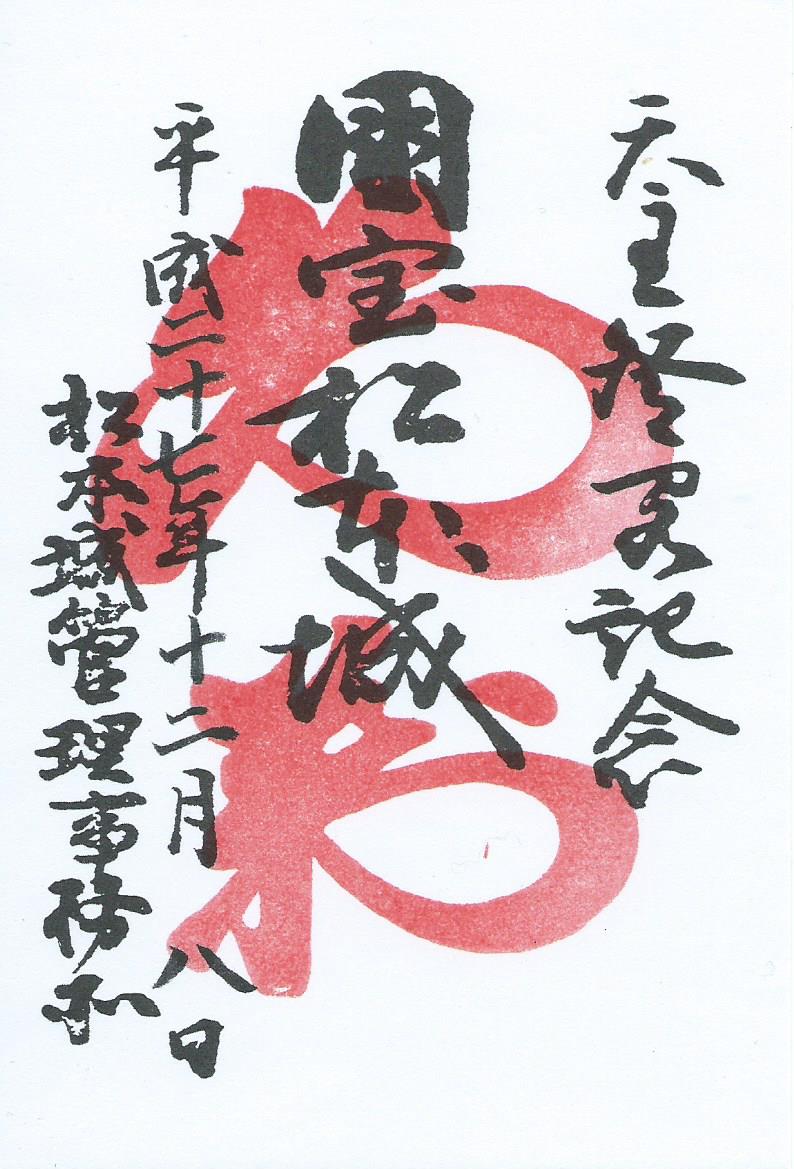 天主登閣記念
国宝松本城
平成二十七年十二月八日
松本城管理事務所